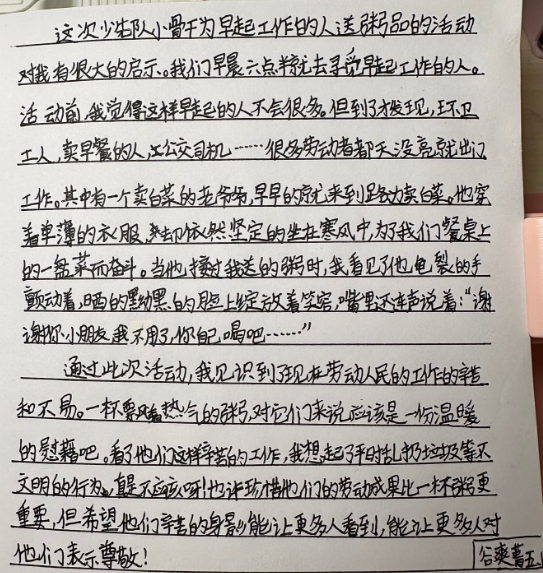 这次少先队小骨干为早起工作的人送粥品的活动
对我有很大的启示。我们早晨六点半就去寻觅早起工作的人。
活动前,我觉得这样早起的人不会很多。但到了才发现,环卫
工人,卖早餐的人,公交司机……很多劳动者都天没亮就出门
工作。其中有一个卖白菜的老爷爷,早早的就来到路边卖白菜。他穿
着单薄的衣服,却依然坚定的坐在寒风中,为了我们餐桌上
的一盘菜而奋斗。当他接过我送的粥时,我看见了他皲裂的手
颤动着,晒的黝黑的脸上绽放着笑容,嘴里还连声说着:“谢
谢你小朋友,我不用了,你自己喝吧……”
通过此次活动,我见识到了现在劳动人民的工作的辛苦
和不易。一杯飘着热气的粥,对它们来说应该是一份温暖
的慰藉吧。看了他们这样辛苦的工作,我想起了平时乱扔垃圾等不
文明的行为,真是不应该呀!也许珍惜他们的劳动成果比一杯粥更
重要,但希望他们辛苦的身影,能让更多人看到,能让更多人对
他们表示尊敬!
五